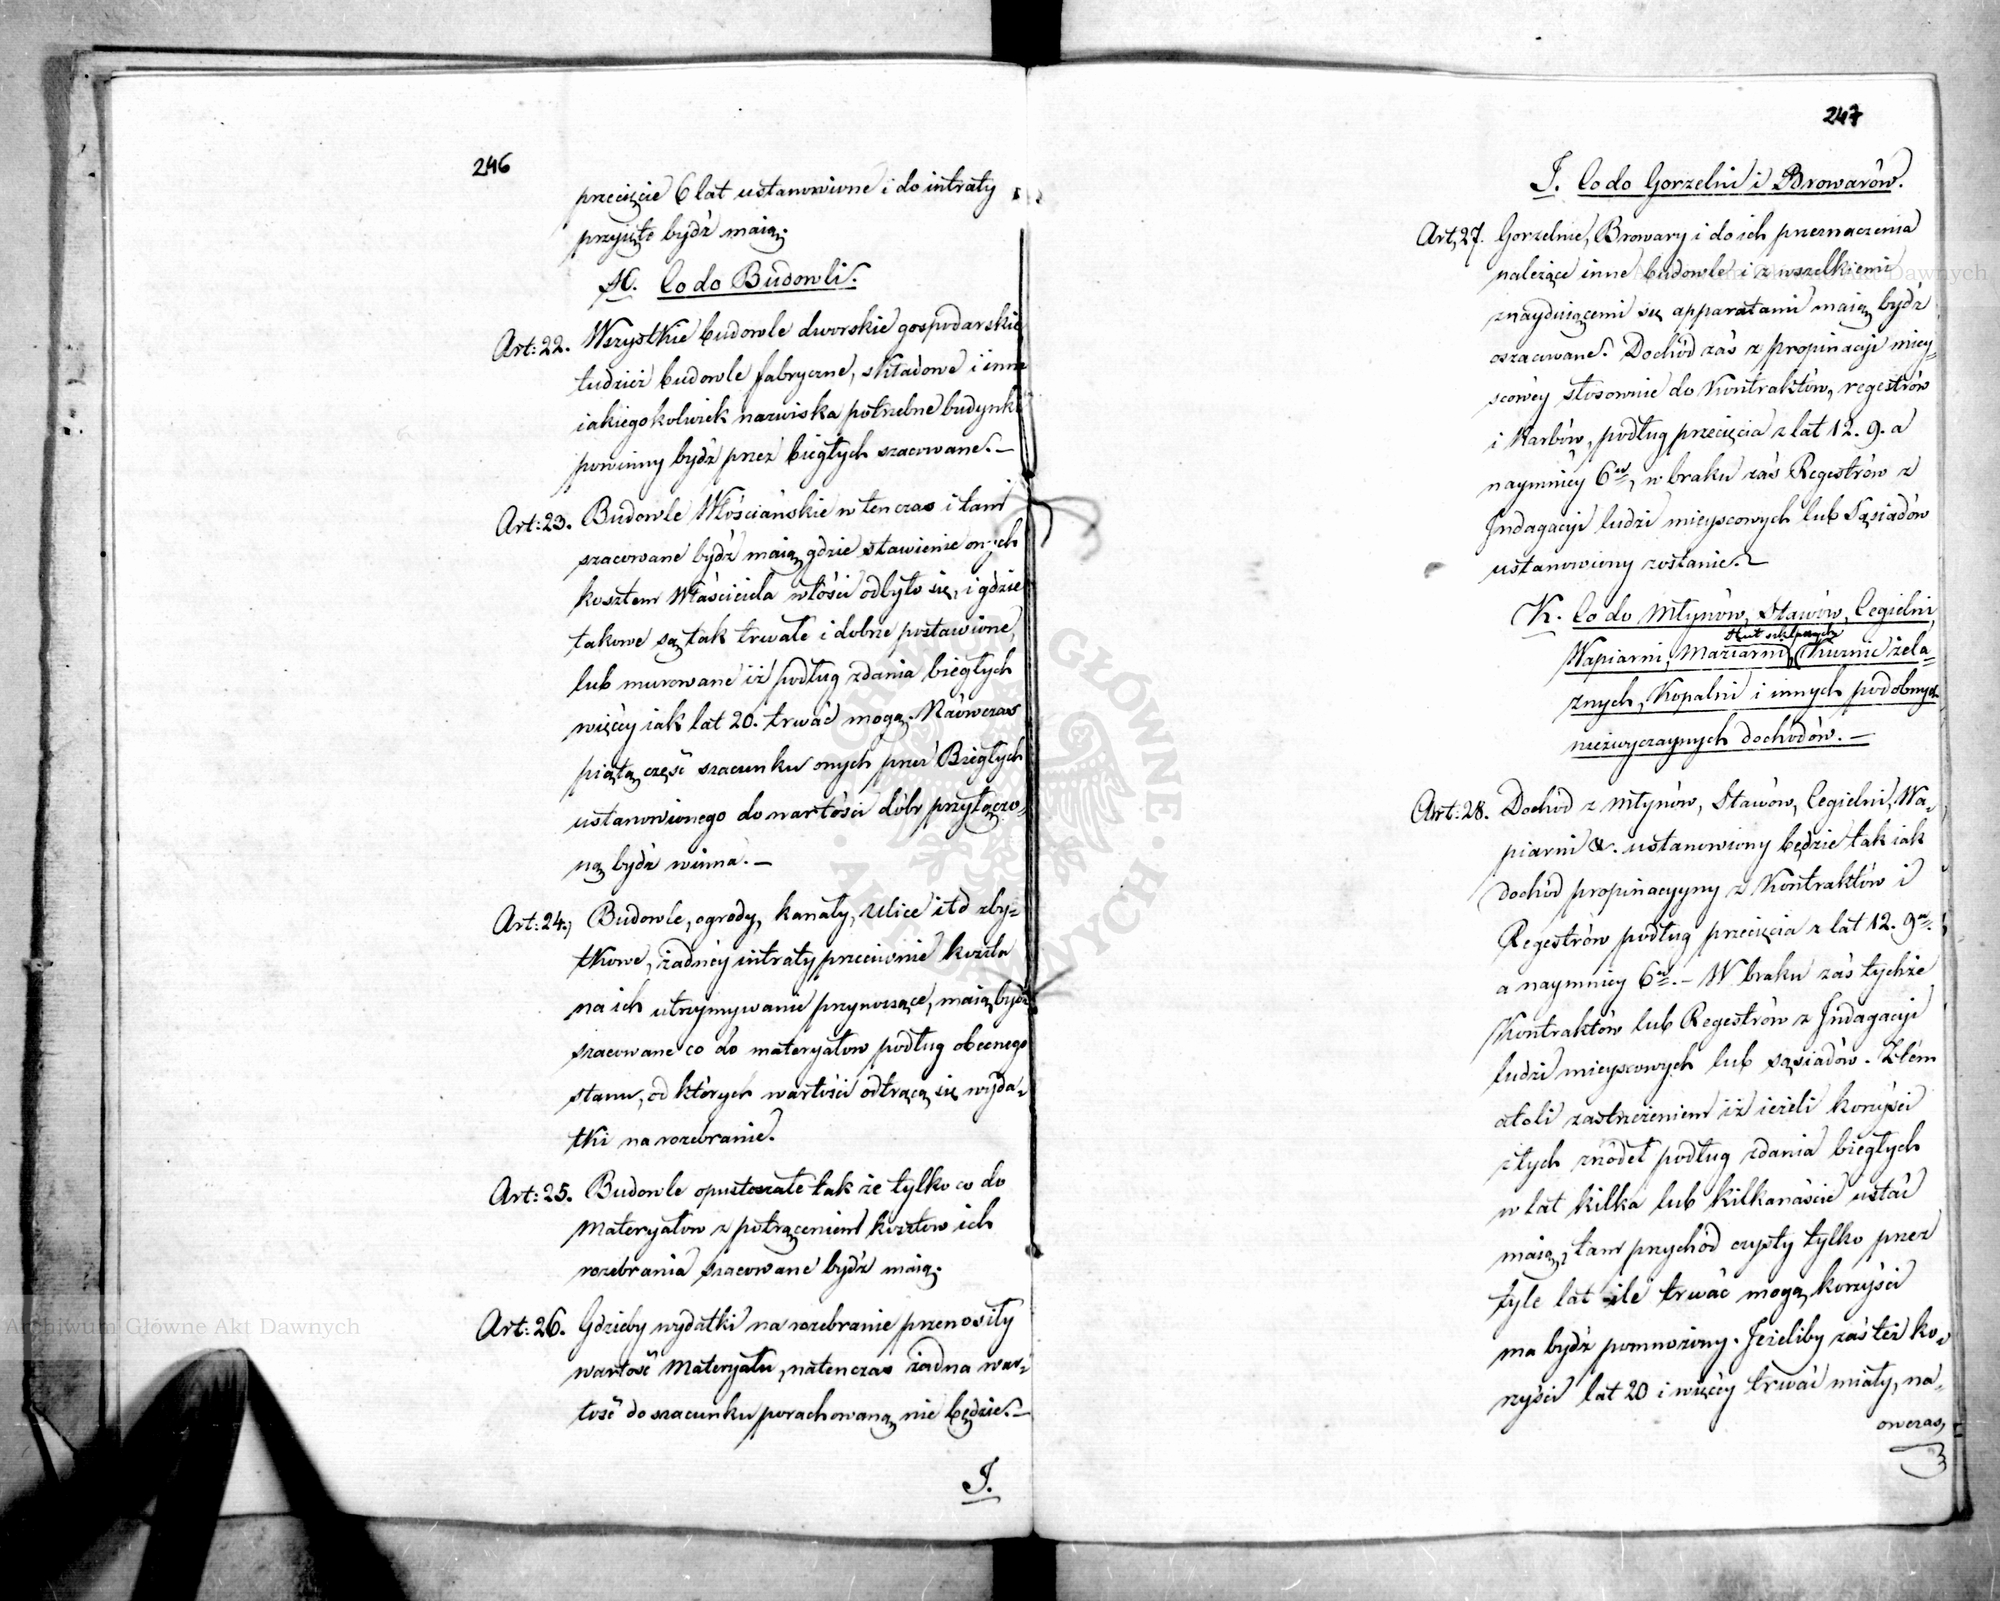 246
przecięcie 6 lat ustanowione i do intraty
przyięte bydź maią.
H. Co do Budowli.
Art: 22. Wszystkie budowle dworskie gospodarskie
tudzież budowle fabryczne, składowe i inne
iakiegokolwiek nazwiska potrzebne budynki
powinny bydź przez biegłych szacowane. –
Art: 23. Budowle Włościańskie w ten czas i tam
szacowane bydź maią gdzie stawienie onych
kosztem Właściciela włości odbyło się, i gdzie
takowe są tak trwałe i dobrze postawione,
lub murowane iż podług zdania biegłych
więcéy iak lat 20. trwać mogą. Naówczas
piątą część szacunku onych przez Biegłych
ustanowionego do wartości dóbr przyłączo-
ną bydź winna. –
Art: 24. Budowle, ogrody, kanały, ulice itd zby-
tkowe, żadnéy intraty przeciwnie koszta
na ich utrzymywanie przynoszące, maią bydź
szacowane co do materyałow podług obecnego
stanu, od których wartości odtrącą się wyda-
tki na rozebranie.
Art: 25. Budowle opustoszałe tak że tylko co do
Materyałow z potrąceniem kosztow ich
rozebrania szacowane bydź maią.
Art: 26. Gdzieby wydatki na rozebranie przenosiły
wartość Materyału, natenczas żadna war-
tość do szacunku porachowaną nie będzie. –
I.
247
I. Co do Gorzelni i Browarów.
Art, 27. Gorzelnie, Browary i do ich przeznaczenia
należące inne budowle i z wszelkiemi
znayduiącemi się apparatami maią bydź
oszacowane. Dochód zaś z propinacyi miey-
scowéy stosownie do Kontraktów, regestrów
i Karbów, podług przecięcia z lat 12. 9. a
naymniéy 6ciu, w braku zaś Regestrów z
Indagacyi ludzi mieyscowych lub Sąsiadów
ustanowiony zostanie. –
K. Co do Młynów, Stawów, Cegielni,
Hut szklannych
Wapiarni, Maziarni, Kuznic żela-
znych, Kopalni i innych podobnych
niezwyczaynych dochodów. –
Art: 28. Dochód z Młynów, Stawów, Cegielni, Wa-
piarni &. ustanowiony będzie tak iak
dochód propinacyyny z Kontraktów i
Regestrów podług przecięcia z lat 12. 9ciu
a naymniey 6ciu. – W braku zaś tychże
Kontraktów lub Regestrów z Indagacyi
ludzi mieyscowych lub sąsiadów. Z tém
atoli zastrzeżeniem iż ieżeli korzyści
z tych źródeł podług zdania biegłych
w lat kilka lub kilkanaście ustać
maią, tam przychód czysty tylko przez
tyle lat ile trwać mogą korzyści
ma bydź pomnożony. Jeżeliby zaś też ko-
rzyści lat 20 i więcéy trwać miały, na-
owczas,
Archiwum Główne Akt Dawnych